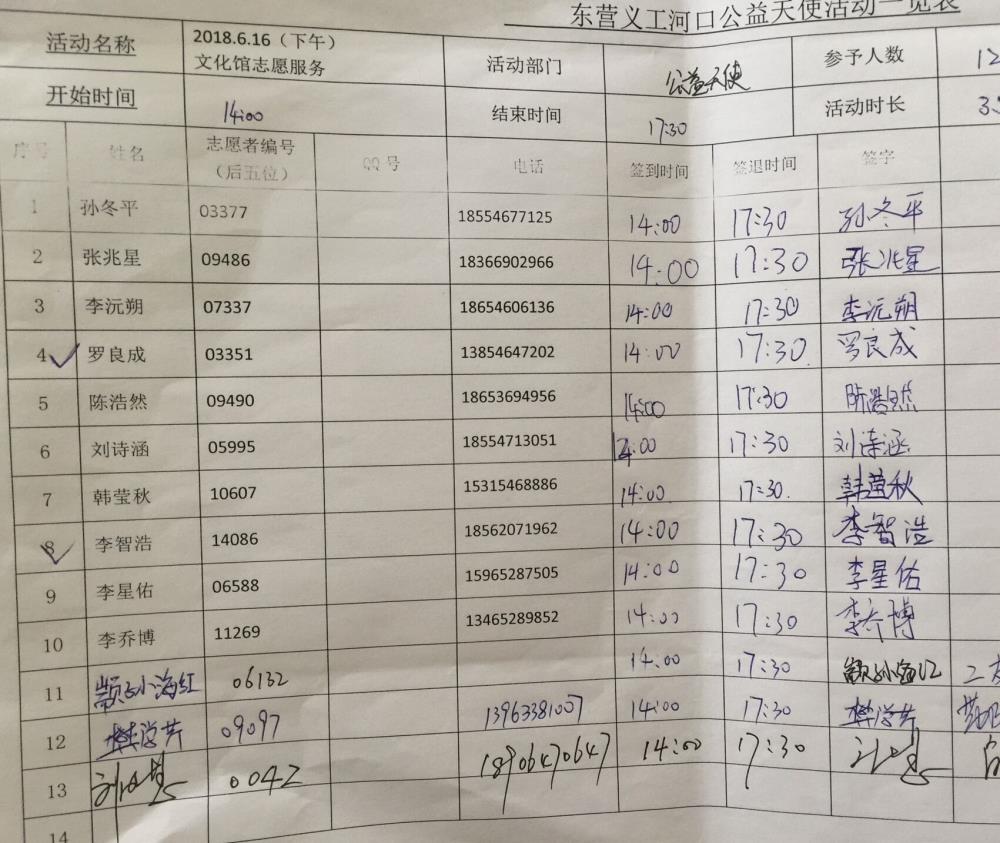 东营义工河口公益天使活动一览表
活动名称 2018.6.16（下午） 文化馆志愿服务 活动部门 公益天使 参予人数 12
开始时间 14:00 结束时间 17:30 活动时长
序号 姓名 志愿者编号（后五位） QQ号 电话 签到时间 签退时间 签字
1 孙冬平 03377 18554677125 14:00 17:30 孙冬平
2 张兆星 09486 18366902966 14:00 17:30 张兆星
3 李沅朔 07337 18654606136 14:00 17:30 李沅朔
4 罗良成 03351 13854647202 14:00 17:30 罗良成
5 陈浩然 09490 18653694956 14:00 17:30 陈浩然
6 刘诗涵 05995 18554713051 14:00 17:30 刘诗涵
7 韩莹秋 10607 15315468886 14:00 17:30 韩莹秋
8 李智浩 14086 18562071962 14:00 17:30 李智浩
9 李星佑 06588 15965287505 14:00 17:30 李星佑
10 李乔博 11269 13465289852 14:00 17:30 李乔博
11 颛孙海红 06132 14:00 17:30 颛孙海红
12 樊学芹 09097 13963381007 14:00 17:30 樊学芹
13 0042 18906470647 14:00 17:30
14